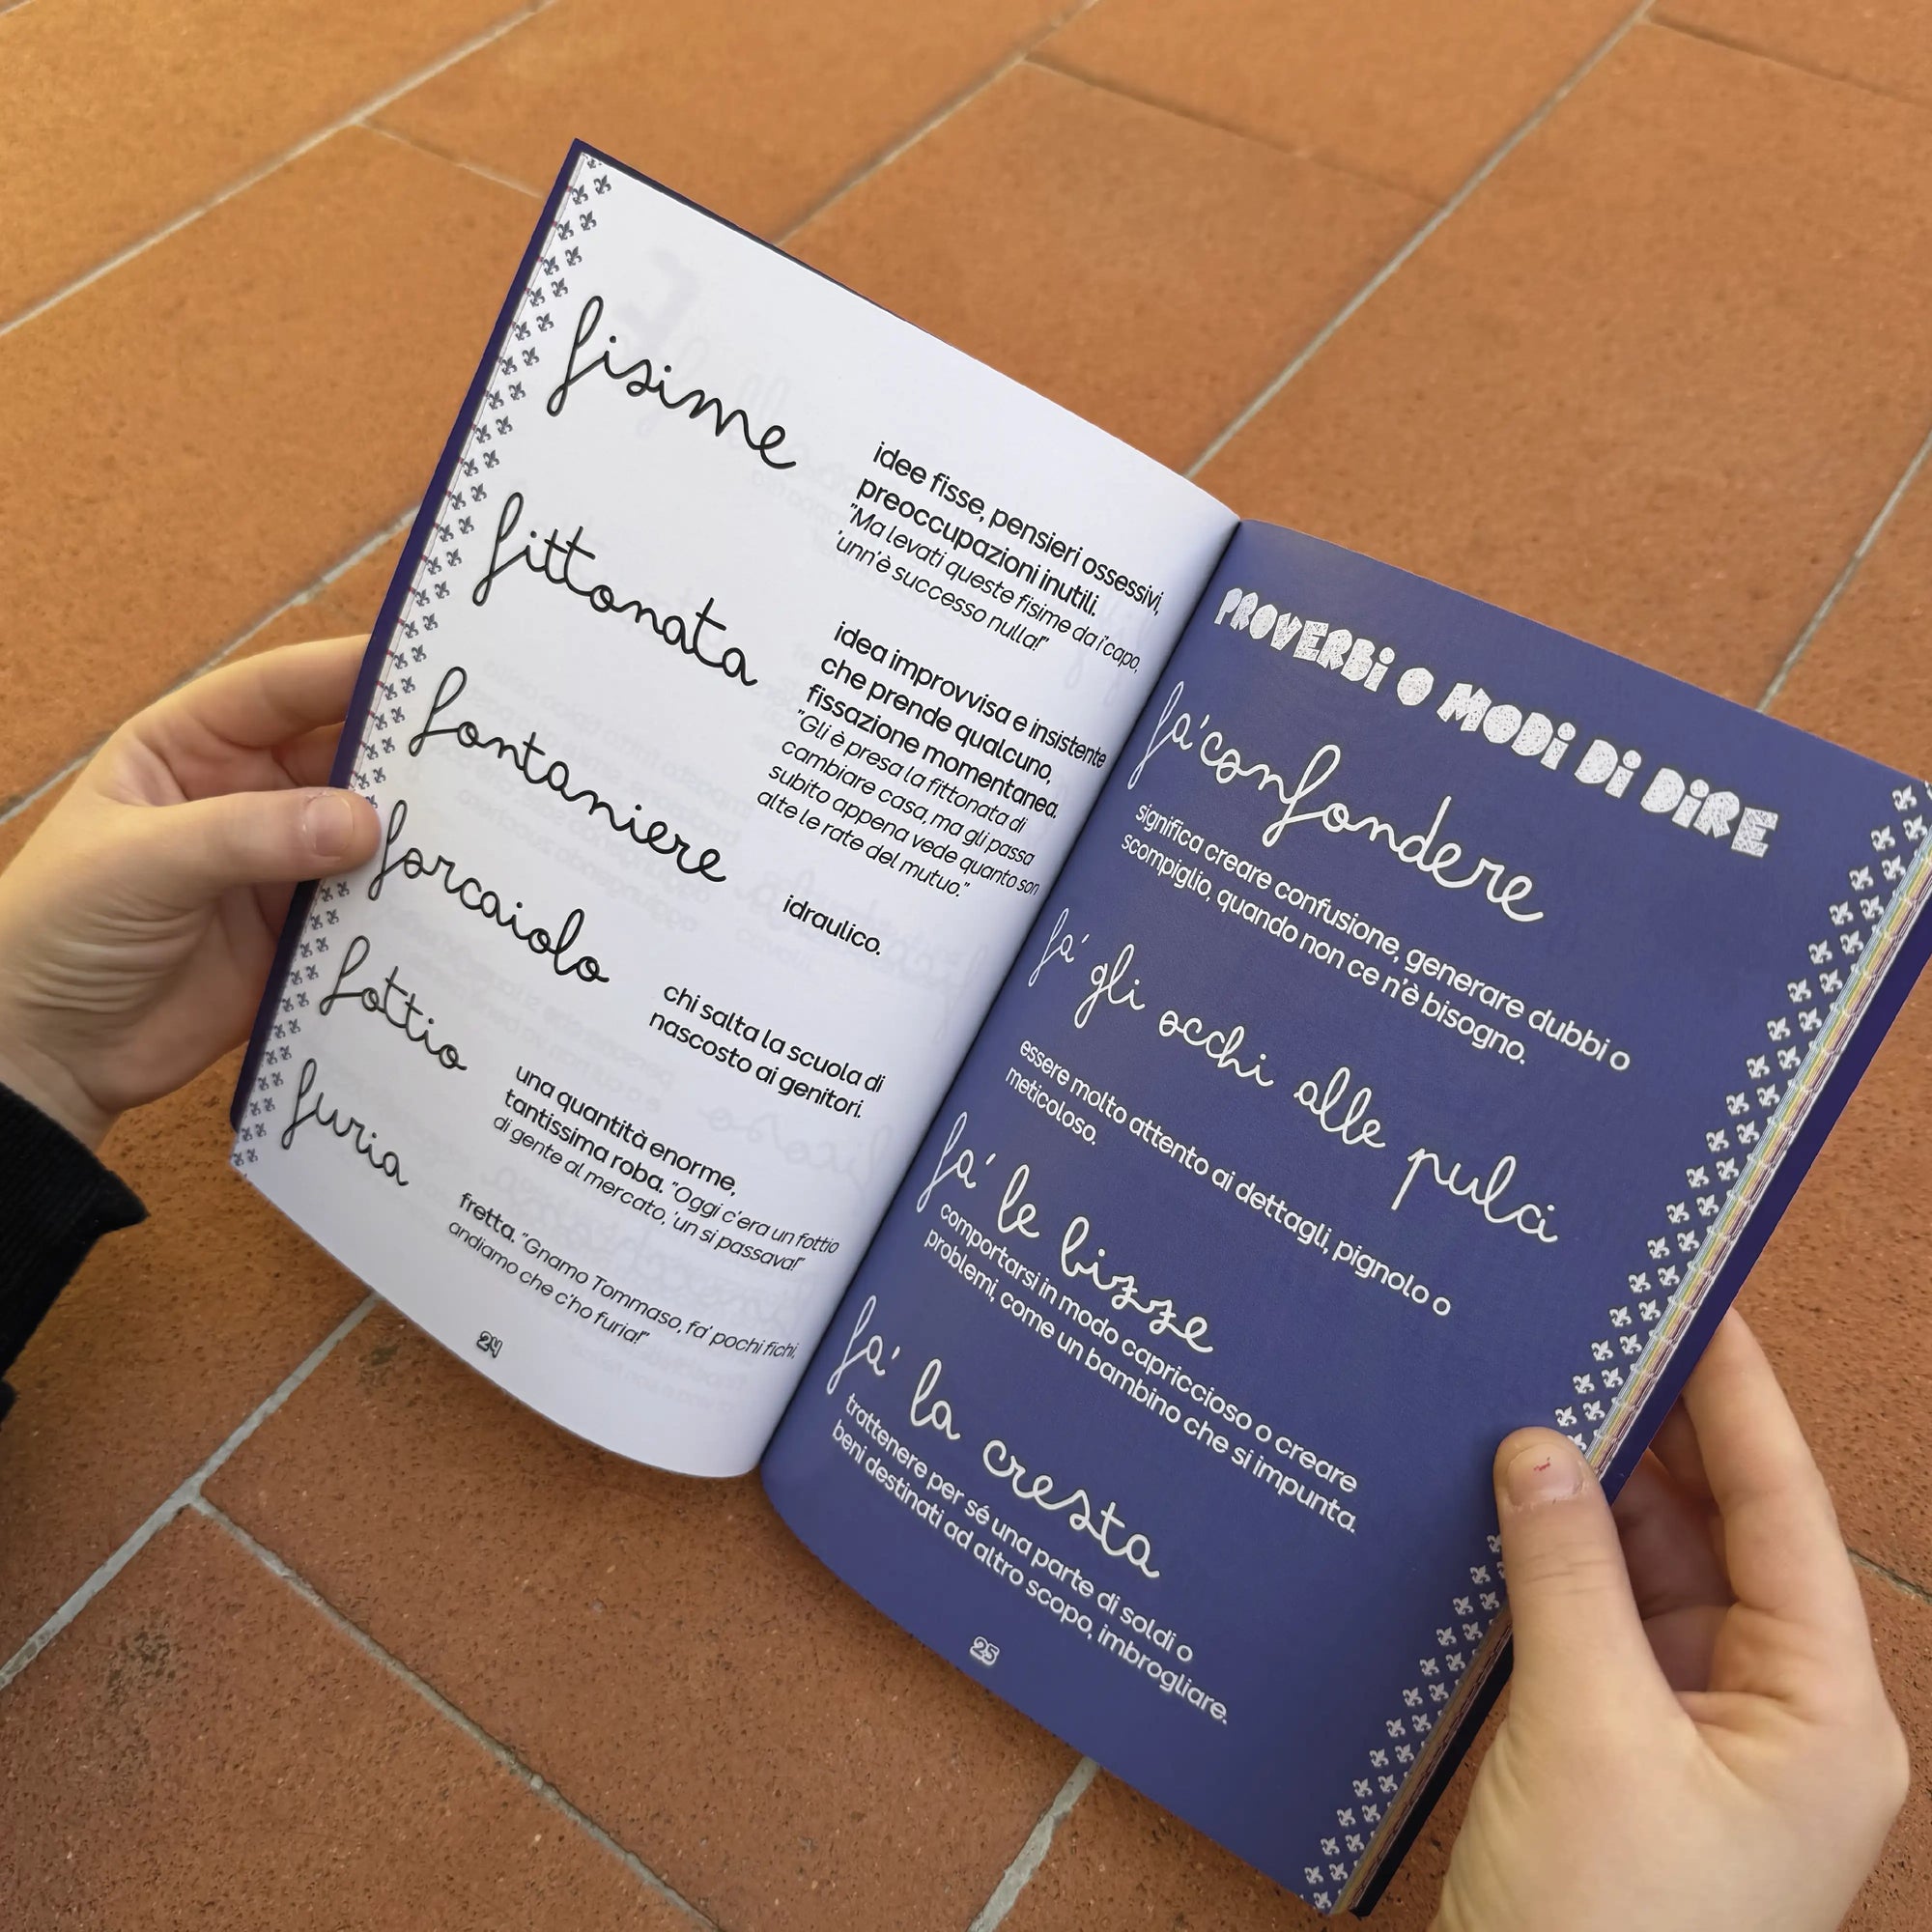 fisime
idee fisse, pensieri ossessivi,
preoccupazioni inutili.
"Ma levati queste fisime da i'capo,
'unn'è successo nulla!"
fittonata
idea improvvisa e insistente
che prende qualcuno,
fissazione momentanea.
"Gli è presa la fittonata di
cambiare casa, ma gli passa
subito appena vede quanto son
alte le rate del mutuo."
fontaniere
idraulico.
forcaiolo
chi salta la scuola di
nascosto ai genitori.
fottio
una quantità enorme,
tantissima roba. "Oggi c'era un fottio
di gente al mercato, 'un si passava!"
furia
fretta. "Gnamo Tommaso, fa' pochi fichi,
andiamo che c'ho furia!"
24
PROVERBi O MODi Di DiRE
fa' confondere
significa creare confusione, generare dubbi o
scompiglio, quando non ce n'è bisogno.
fa' gli occhi alle pulci
essere molto attento ai dettagli, pignolo o
meticoloso.
fa' le bizze
comportarsi in modo capriccioso o creare
problemi, come un bambino che si impunta.
fa' la cresta
trattenere per sé una parte di soldi o
beni destinati ad altro scopo, imbrogliare.
25